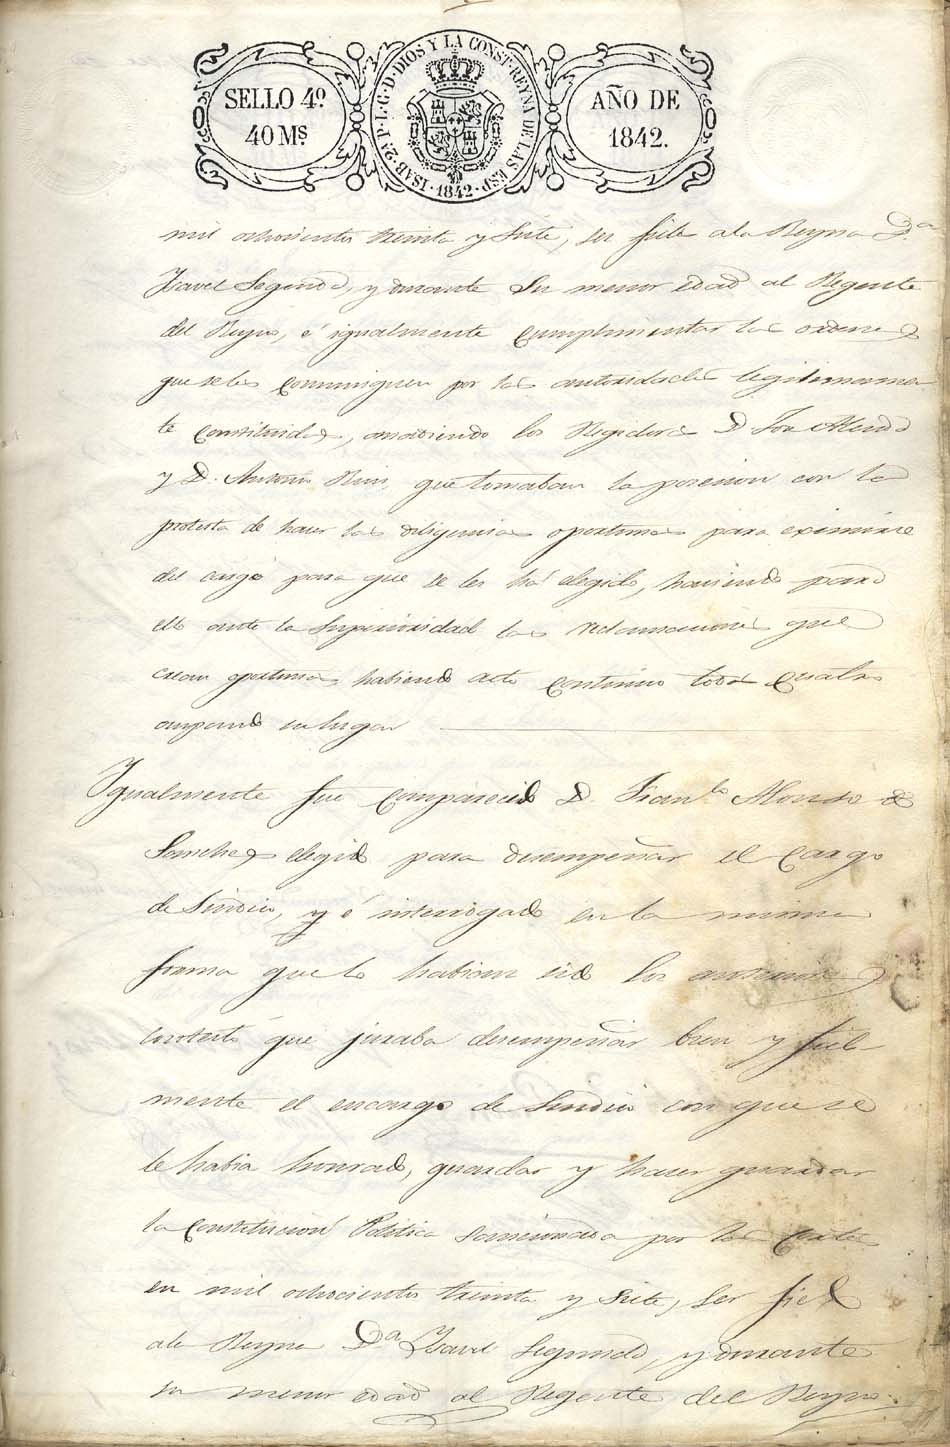 SELLO 4º
40 Mˢ.
ISAB. 2ª P. L. G. D. DIOS Y LA CONST. REYNA DE LAS ESP. 1842.
AÑO DE
1842.
mil ochocientos treinta y siete, ser fiele ala Reyna Dª
Ysavel Segunda, y durante su menor edad al Regente
del Reyno, é igualmente cumplimentar las ordenes
que seles comuniquen por las autoridades legitimamen
te constituidas, añadiendo los Regidores D.
y D. Antonio que tomaban la posesion con la
protesta de hacer las diligencias oportunas para eximirse
del cargo para que se les há elegido, haciendo para
ello ante la Superioridad las reclamaciones que
crean oportunas habiendo acto continuo todos cuatro
ocupando su lugar
Ygualmente fue comparecido D. Franᶜᵒ Alonso
Sanchez elegido para desempeñar el cargo
de Sindico, y é interrogado en la misma
forma que lo habian sido los anteriores
contestó que juraba desempeñar bien y fiel-
mente el encargo de Sindico con que se
le habia honrado, guardar y hacer guardar
la Constitucion Politica sancionada por las Cortes
en mil ochocientos treinta y siete, ser fiel
ala Reyna Dª Ysavel Segunda, y durante
su menor edad al Regente del Reyno